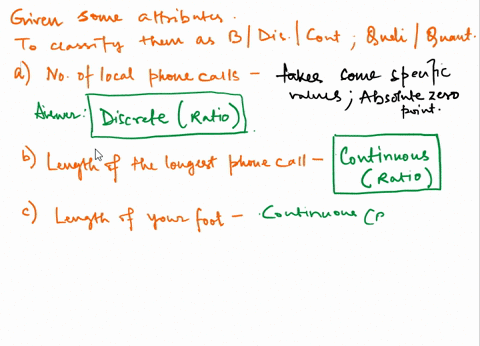 Given some attributes.
To classify them as B/Dis./Cont ; Quali/Quant.
a) No. of local phone calls - takes some specific
values; Absolute zero
point.
Answer: Discrete (Ratio)
b) Length of the longest phone call - Continuous
(Ratio)
c) Length of your foot - Continuous (